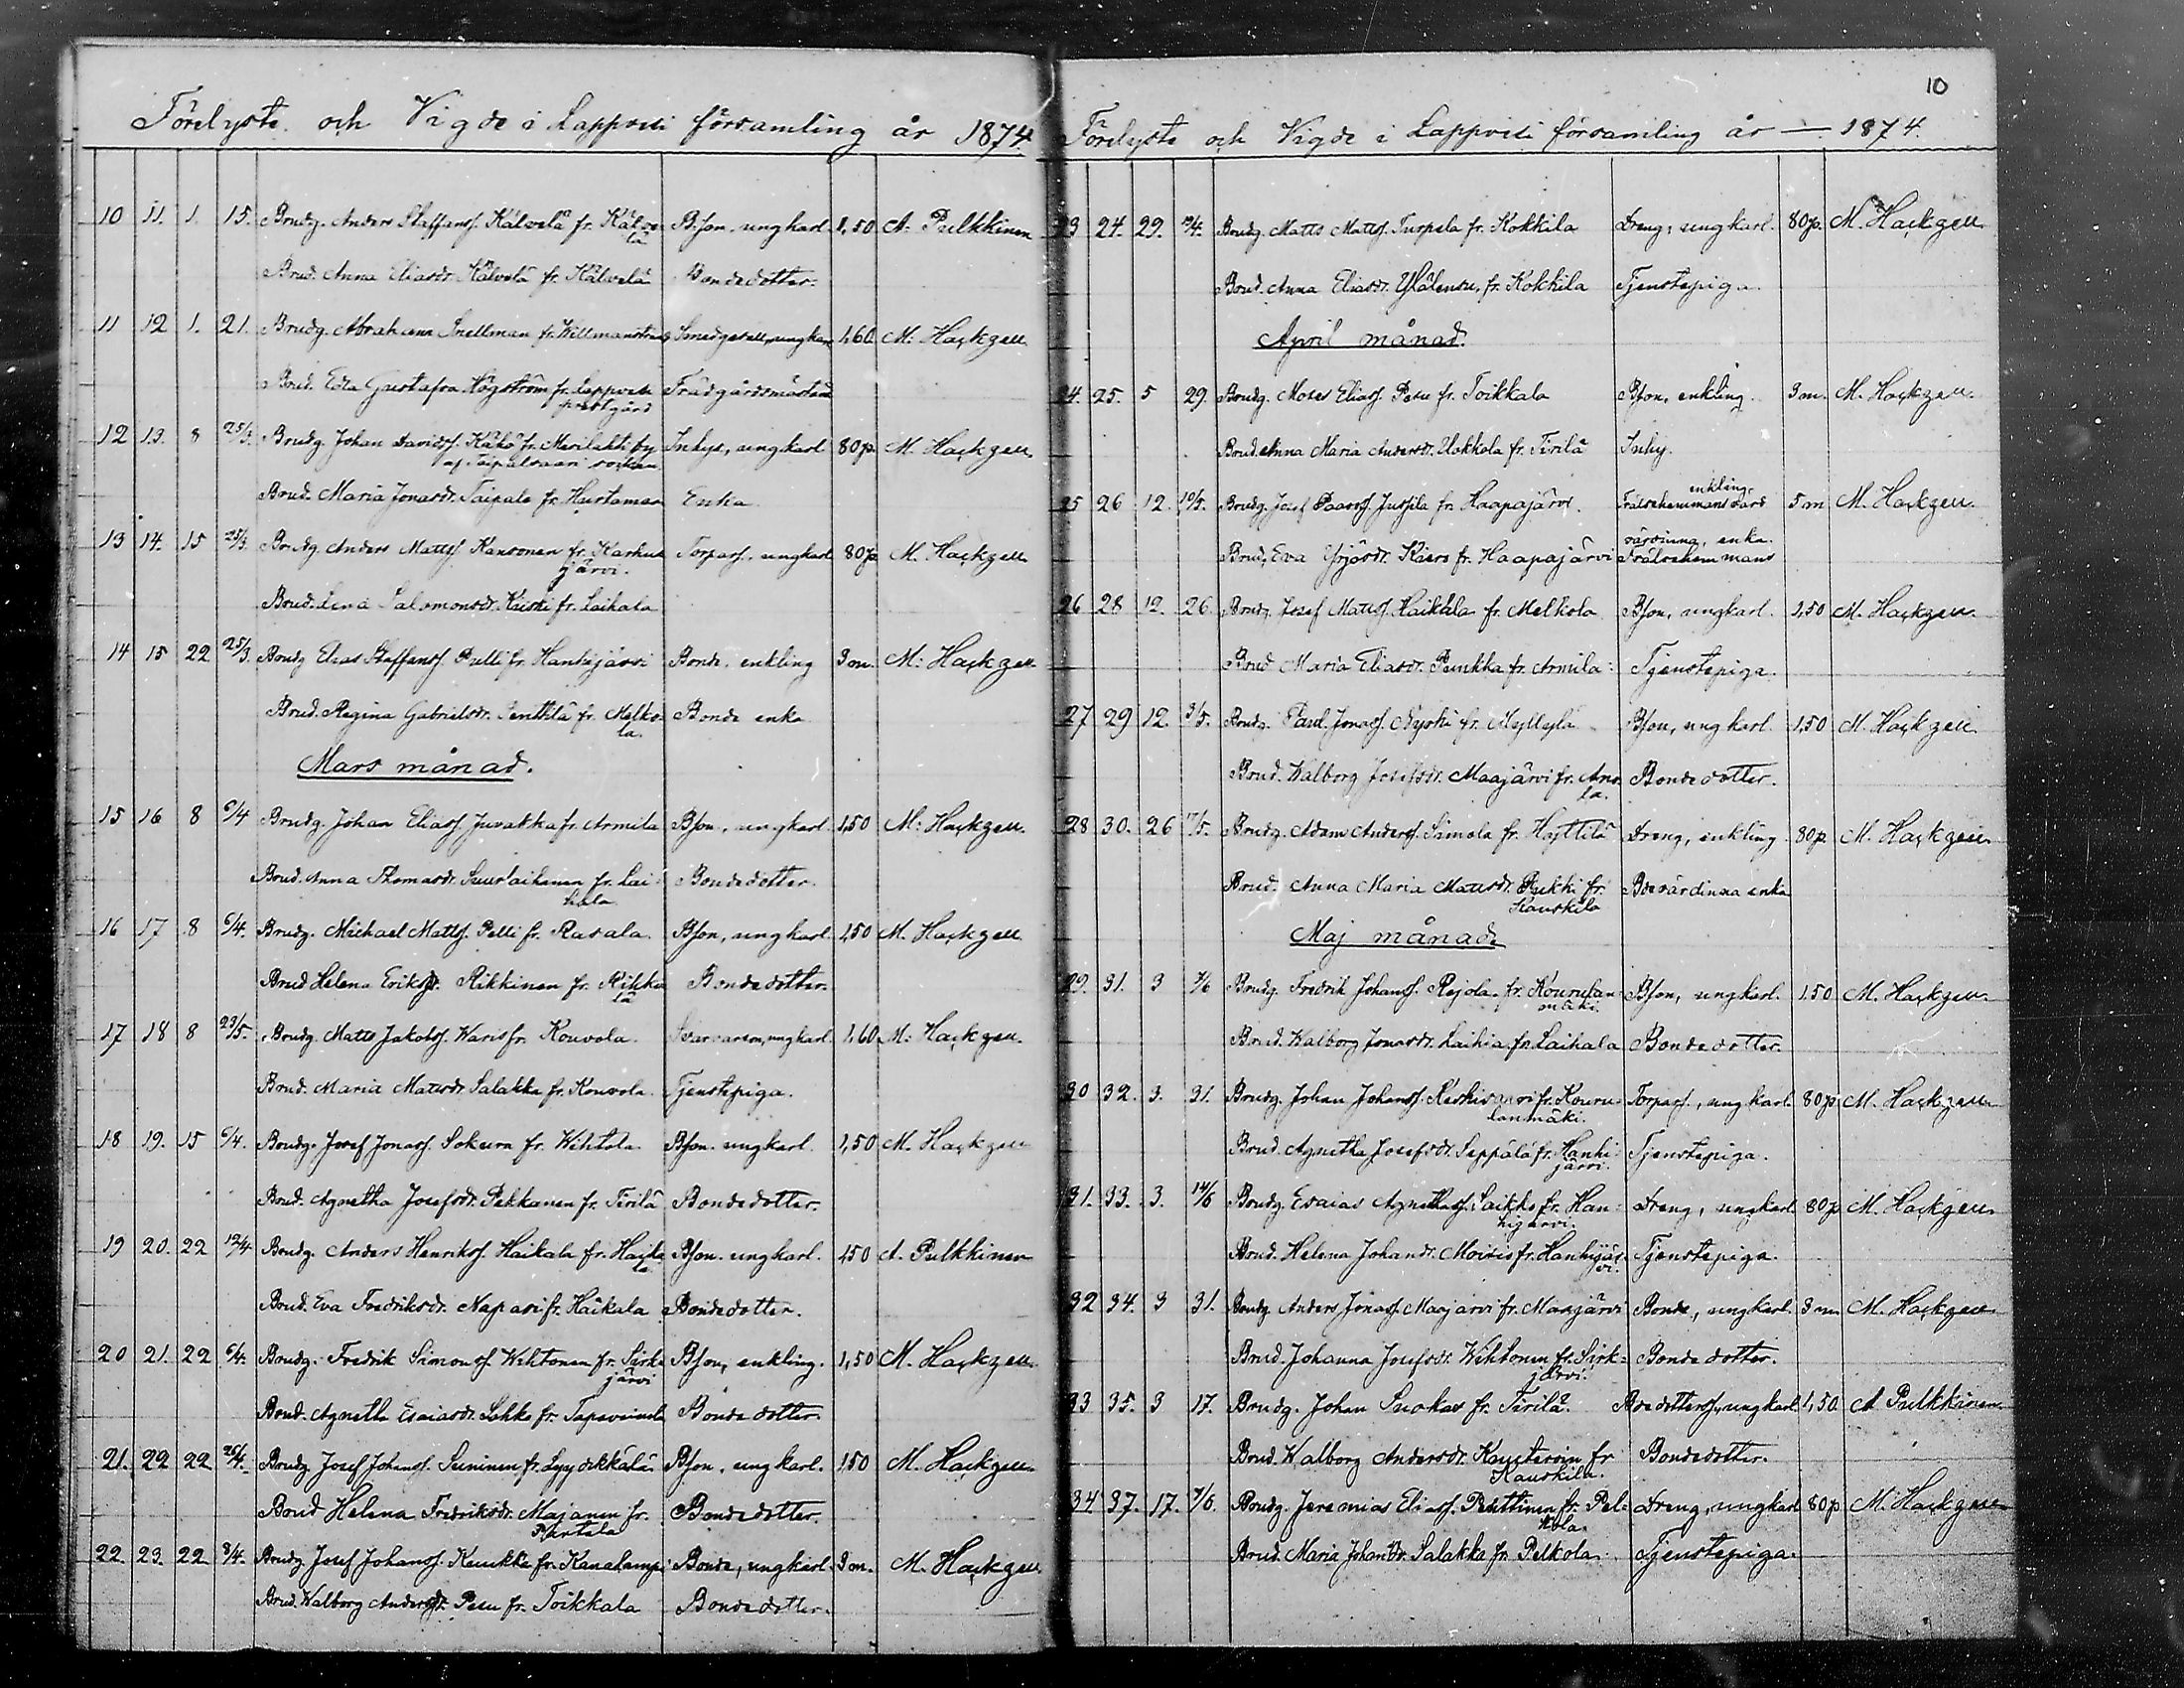 Förelyste och Vigde i Lappvesi församling år 1874.
10 11. 1. 15. Brudg. Anders Staffanss. Kälvelä fr. Kälve- Bson, ungkarl 1,50 A. Pulkkinen
lä
Brud. Anna Eliasdr. Kälvelä fr. Kälvelä Bondedotter.
11 12 1. 21. Brudg. Abraham Snellman fr. Willmanstrand Smedgesell, ungkarl 1,60. M. Hackzell
Brud. Edla Gustafva Högström fr. Lappvesi
prestgård
12 13. 8 25/3. Brudg. Johan Davidss. Käkö fr. Merilahti by Inhys, ungkarl 80 p. M. Hackzell
af Taipalsaari socken
Brud. Maria Jonasdr. Taipale fr. Hurtamaa Enka
13 14. 15 25/3. Brudg. Anders Mattss. Kansonen fr. Karhus- Torpars. ungkarl 80 p M. Hackzell
järvi.
Brud. Lena Salomonsdr. Kaiski fr. Laihala
14 15 22 25/3. Brudg. Elias Staffanss. Pulli fr. Hanhijärvi Bonde, enkling 3 m. M. Hackzell
Brud. Regina Gabrielsdr. Penttilä fr. Melko- Bonde enka
la.
Mars månad.
15 16 8 6/4 Brudg. Johan Eliass. Juvakka fr. Armila Bson, ungkarl 1,50 M. Hackzell
Brud. Anna Thomasdr. Suurlaihanen fr. Lai- Bondedotter.
hala
16 17 8 6/4. Brudg. Michael Mattss. Pelli fr. Rasala Bson, ungkarl. 1,50 M. Hackzell
Brud Helena Eriksdr. Rikkinen fr. Rikki- Bondedotter.
lä
17 18 8 23/5. Brudg. Matts Jakobss. Waris fr. Kouvola ungkarl. 1,60 M. Hackzell
Brud. Maria Mattsdr. Salakka fr. Kouvola. Tjenstepiga.
18 19. 15 6/4. Brudg. Josef Jonass. Sokura fr. Wihtola Bson. ungkarl. 1,50 M. Hackzell
Brud. Agnetha Josefsdr. Pekkanen fr. Tirilä Bondedotter.
19 20. 22 12/4 Brudg. Anders Henrikss. Haikala fr. Haika- Bson. ungkarl. 1,50 A. Pulkkinen
la
Brud. Eva Fredriksdr. Napari fr. Haikala Bondedotter.
20 21. 22 6/4. Brudg. Fredrik Simonss. Wehtonen fr. Sirk- Bson, enkling. 1,50 M. Hackzell
järvi
Brud. Agnetha Esaiasdr. Lohko fr. Tapavainola Bonde dotter.
21. 22 22 26/4. Brudg. Josef Johanss. Suninen fr. Lyydikkälä Bson, ungkarl. 1,50 M. Hackzell
Brud Helena Fredriksdr. Majanen fr. Bondedotter.
Partala
22. 23. 22 3/4. Brudg. Josef Johanss. Kuukka fr. Kanalampi Bonde, ungkarl. 3 m. M. Hackzell
Brud. Walborg Andersdr. Pesu fr. Toikkala Bondedotter.
10
Förelyste och Vigde i Lappvesi församling år — 1874.
23 24. 29. Brudg. Matts Mattss. Turpela fr. Kokkila Dreng, ungkarl. 80 p. M. Hackzell
Brud. Anna Eliasdr. fr. Kokkila Tjenstepiga.
April månad.
24. 25. 5 29. Brudg. Moses Eliass. Pesu fr. Toikkala Bson, enkling. 3 m. M. Hackzell
Brud. Anna Maria Andersdr. Ukkola fr. Tirilä Inhy.
enkling.
25 26 12. 10/5. Brudg. Josef Paavoss. Jussila fr. Haapajärvi. Frälsehemmans värd 5 m M. Hackzell
värdinna, enka.
Brud. Eva Yrjösdr. Käers fr. Haapajärvi Frälsehemmans
26 28 12. 26. Brudg. Josef Mattss. Haikala fr. Melkola Bson, ungkarl. 1,50 M. Hackzell
Brud Maria Eliasdr. Punkka fr. Armila Tjenstepiga.
27 29 12. 3/5. Brudg. Paul. Jonass. Nyrhi fr. Myllylä Bson, ungkarl. 1,50 M. Hackzell
Brud. Walborg Josefsdr. Maajärvi fr. Ano- Bondedotter.
la.
28 30. 26 17/5. Brudg. Adam Anderss. Simola fr. Hyttilä Dreng, enkling 80 p. M. Hackzell
Brud. Anna Maria Mattsdr. Pukki fr. Bdevärdinna enka
Kauskila
Maj månad.
29. 31. 3 7/6 Brudg. Fredrik Johanss. Rejola fr. Kourulan- Bson, ungkarl. 1.50 M. Hackzell
mäki.
Brud. Walborg Jonasdr. Laihia fr. Laihala Bondedotter.
30 32. 3. 31. Brudg. Johan Johanss. Keskisaari fr. Kouru- Torpars., ungkarl. 80 p. M. Hackzell
lanmäki.
Brud. Agnetha Josefsdr. Seppälä fr. Hanhi- Tjenstepiga.
järvi.
31. 33. 3. 14/6 Brudg. Esaias Agnethass. Saikko fr. Han- Dreng, ungkarl 80 p M. Hackzell
hijärvi.
Brud. Helena Johansdr. Moisio fr. Hanhijär- Tjenstepiga.
vi.
32 34. 3 31. Brudg. Anders Jonass. Maajärvi fr. Maajärvi Bonde, ungkarl. 3 m M. Hackzell
Brud. Johanna Josefsdr. Wehtonen fr. Sirk- Bonde dotter.
järvi.
33 35. 3 17. Brudg. Johan Suokas fr. Tirilä. Bdedotters, ungkarl 1,50. A Pulkkinen
Brud. Walborg Andersdr. fr Bondedotter.
Kauskila.
34 37. 17. 7/6. Brudg. Jeremias Eliass. Penttinen fr. Pel- Dreng, ungkarl 80 p M. Hackzell
kola.
Brud. Maria Johansdr. Salakka fr. Pelkola. Tjenstepiga.